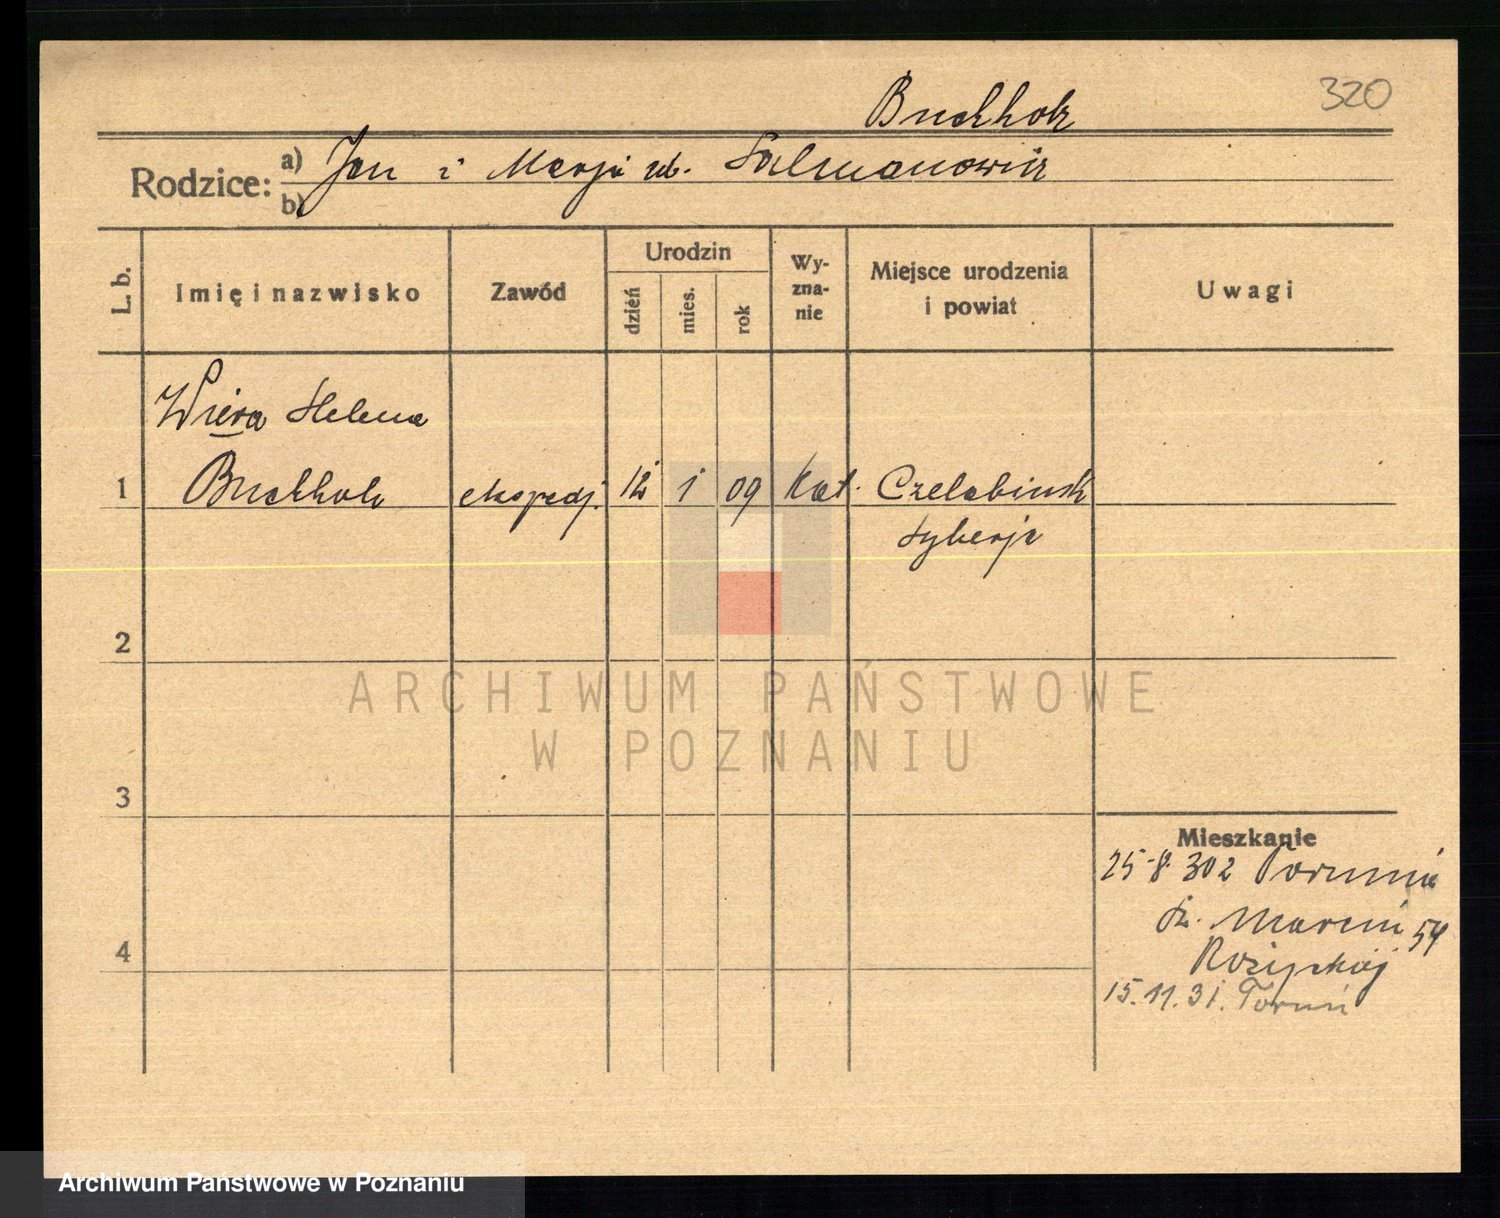 320
Buchholz
Rodzice:
a) Jan i Marja ur. Salmanowicz
b)
L. b.
Imię i nazwisko
Zawód
Urodzin
dzień
mies.
rok
Wy-
zna-
nie
Miejsce urodzenia
i powiat
Uwagi
Wiera Helena
1 Buchholz ekspedj. 12 1 09 kat. Czelabinsk
Syberja
2
ARCHIWUM PAŃSTWOWE
W POZNANIU
3
Mieszkanie
25-8. 30 z Torunia
Św. Marcin 54
4
15.11.31. Toruń
Archiwum Państwowe w Poznaniu